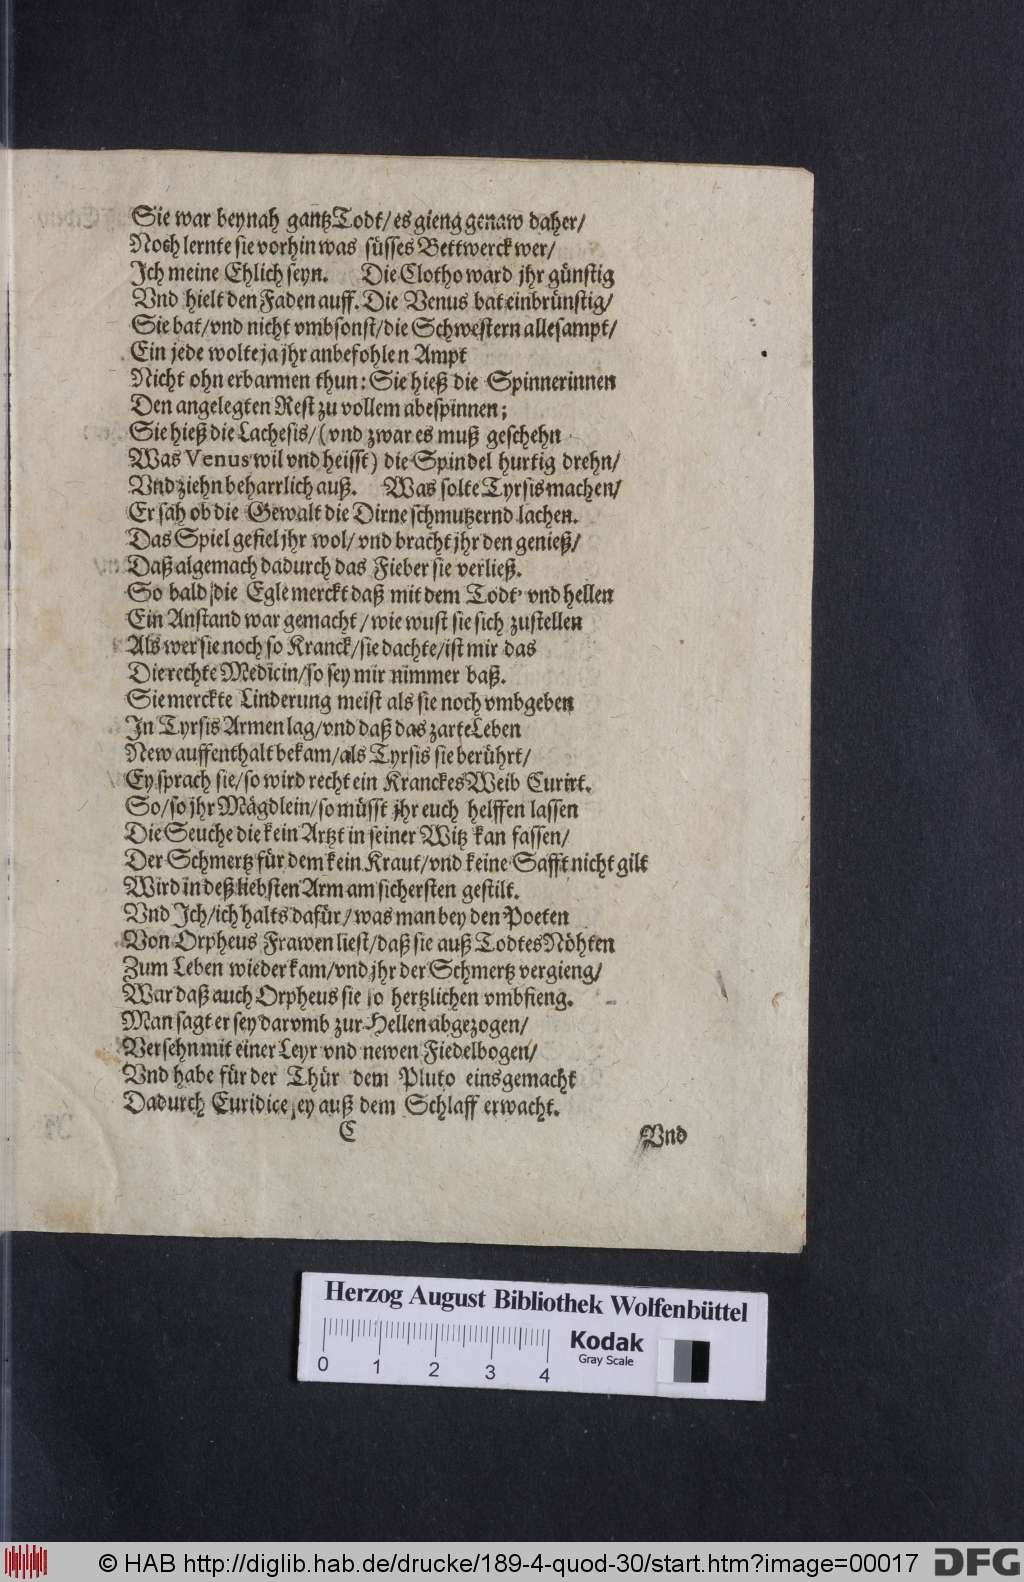 Sie war beynah gantz Todt/ es gieng genaw daher/
Noch lernte sie vorhin was süsses Bettwerck wer/
Ich meine Ehlich seyn. Die Clotho ward jhr günstig
Vnd hielt den Faden auff. Die Venus bat einbrünstig/
Sie bat/ vnd nicht vmbsonst/ die Schwestern allesampt/
Ein jede wolte ja jhr anbefohlen Ampt
Nicht ohn erbarmen thun: Sie hieß die Spinnerinnen
Den angelegten Rest zu vollem abespinnen;
Sie hieß die Lachesis/ (vnd zwar es muß geschehn
Was Venus wil vnd heisst) die Spindel hurtig drehn/
Vnd ziehn beharrlich auß. Was solte Tyrsis machen/
Er sah ob die Gewalt die Dirne schmutzernd lachen.
Das Spiel gefiel jhr wol/ vnd bracht jhr den genieß/
Daß algemach dadurch das Fieber sie verließ.
So bald die Egle merckt daß mit dem Todt vnd hellen
Ein Anstand war gemacht/ wie wust sie sich zustellen
Als wer sie noch so Kranck/ sie dachte/ ist mir das
Die rechte Medicin/ so sey mir nimmer baß.
Sie merckte Linderung meist als sie noch vmbgeben
In Tyrsis Armen lag/ vnd daß das zarte Leben
New auffenthalt bekam/ als Tyrsis sie berührt/
Ey sprach sie/ so wird recht ein Kranckes Weib Curirt.
So/ so jhr Mägdlein/ so müsst jhr euch helffen lassen
Die Seuche die kein Artzt in seiner Witz kan fassen/
Der Schmertz für dem kein Kraut/ vnd keine Safft nicht gilt
Wird in deß liebsten Arm am sichersten gestilt.
Vnd Ich/ ich halts dafür/ was man bey den Poeten
Von Orpheus Frawen liest/ daß sie auß Todtes Nöhten
Zum Leben wieder kam/ vnd jhr der Schmertz vergieng/
War daß auch Orpheus sie so hertzlichen vmbfieng.
Man sagt er sey darvmb zur Hellen abgezogen/
Versehn mit einer Leyr vnd newen Fiedelbogen/
Vnd habe für der Thür dem Pluto eins gemacht
Dadurch Euridice sey auß dem Schlaff erwacht.
C Vnd
Herzog August Bibliothek Wolfenbüttel
Kodak
Gray Scale
0 1 2 3 4
© HAB http://diglib.hab.de/drucke/189-4-quod-30/start.htm?image=00017 DFG